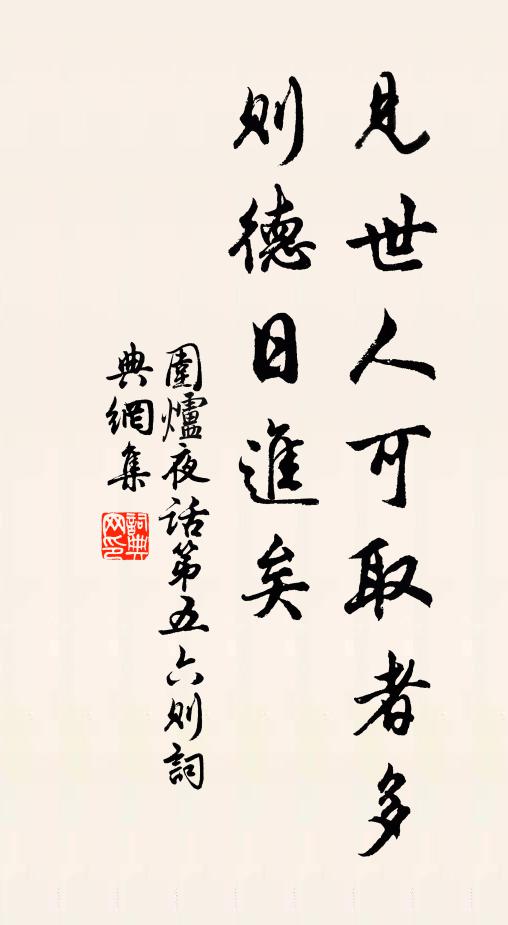 見世人可取者多
則德日進矣
圍爐夜话第五六则詞
典網集
詞典
网印